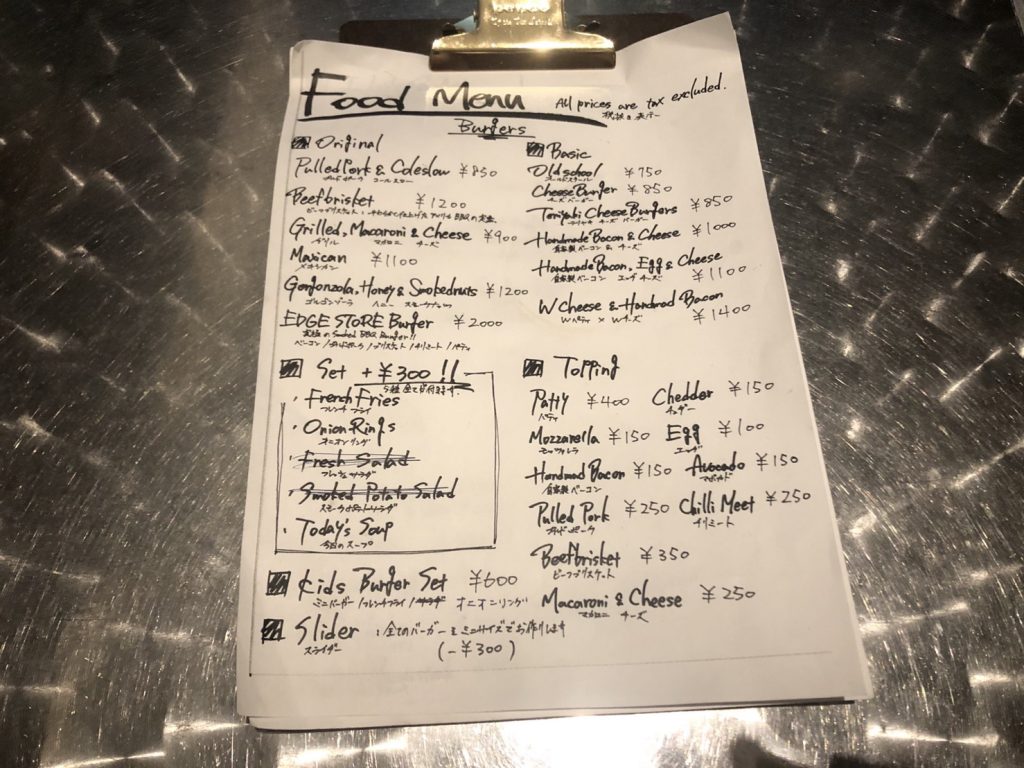 Food Menu
All prices are tax excluded.
Burgers
Original
Pulled Pork & Coleslow ¥850
プルドポーク コールスロー
Beefbrisket ¥1200
Grilled, Macaroni & Cheese ¥900
グリル マカロニ チーズ
Maxican ¥1100
メキシカン
Gorgonzola, Honey & Smokednuts ¥1200
ゴルゴンゾーラ ハニー スモークナッツ
EDGE STORE Burger ¥2000
究極のSmoked BBQ Burger!!
ベーコン/プルドポーク/ブリスケット/チリミート/パティ
Basic
Oldschool ¥750
オールドスクール
Cheese Burger ¥850
チーズ バーガー
Teriyaki Cheese Burgers ¥850
テリヤキ チーズ バーガー
Handmade Bacon & Cheese ¥1000
自家製ベーコン & チーズ
Handmade Bacon, Egg & Cheese ¥1100
自家製ベーコン エッグ チーズ
W Cheese & Handmad Bacon ¥1400
Wパティ × Wチーズ
Set +¥300!!
・French Fries
フレンチ フライ
・Onion Rings
オニオンリング
・Fresh Salad
フレッシュサラダ
・Smoked Potato Salad
スモークポテトサラダ
・Today's Soup
今日のスープ
Topping
Patty ¥400 Chedder ¥150
パティ チェダー
Mozzarella ¥150 Egg ¥100
モッツァレラ エッグ
Handmad Bacon ¥150 Avocado ¥150
自家製ベーコン アボカド
Pulled Pork ¥250 Chilli Meet ¥250
プルドポーク チリミート
Beefbrisket ¥350
ビーフブリスケット
Macaroni & Cheese ¥250
マカロニ チーズ
Kids Burger Set ¥600
ミニバーガー/フレンチフライ/サラダ オニオンリング
Slider :全てのバーガーをミニサイズでお作りします
スライダー (-¥300)